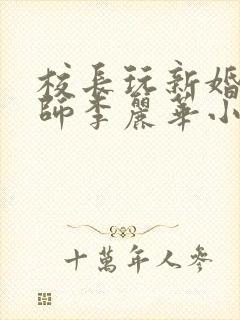 校長玩新婚
師李麗華小
十萬年人參